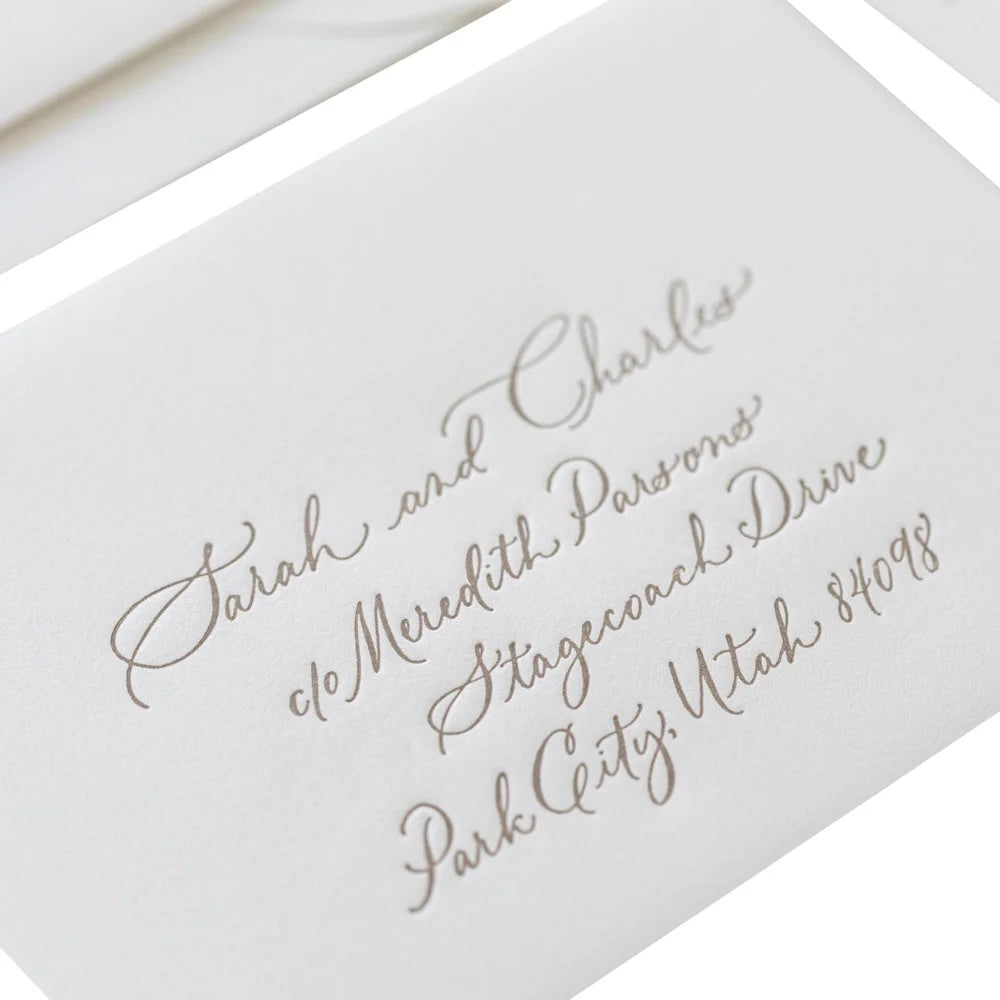 Sarah and Charles
c/o Meredith Parsons
Stagecoach Drive
Park City, Utah 84098